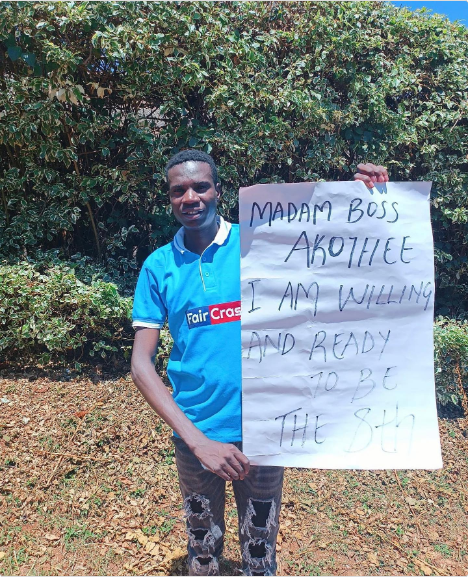 MADAM BOSS
AKOTHEE
I AM WILLING
AND READY
TO BE
THE 8th
Fair Cras